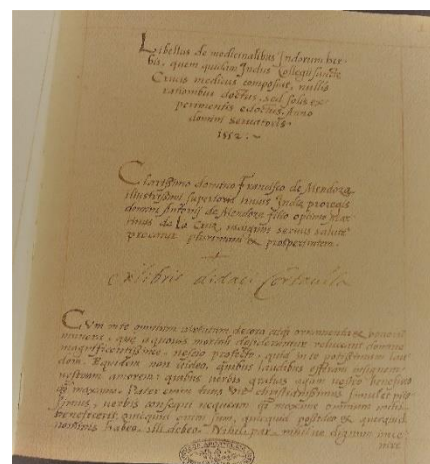 Libellus de medicinalibus Indorum her-
bis, quem quidam Indus Collegii sancte
Crucis medicus composuit, nullis
rationibus doctus, sed solis ex-
perimentis edoctus. Anno
domini servatoris
1552
Clarissimo domino Francisco de Mendoza,
illustrissimi superioris huius Indię proregis
domini Antonij de Mendoza filio optimo Mar-
tinus de La Cruz indignus servus salutē
precatur plurimam & prosperitatem.
ex libris didaci Cortavila
Cum in te omnium virtutum decora
munera, que a quovis mortali desiderantur reluceant domine
magnificentissime, nescio profecto, quid in te potissimum lau
dem. Equidem non video, quibus laudibus efferam insignem
nostrum amorem: quibus verbis gratias agam
maximo. Pater enim tuus vir christianissimus simul et pijs
simus, verbis consequi nequeam maxime omnium mihi
benefecerit: quicquid enim sum, quicquid possideo & quicquid
nominis habeo, illi debeo. Nihil par, nihil illi dignum inve
nire